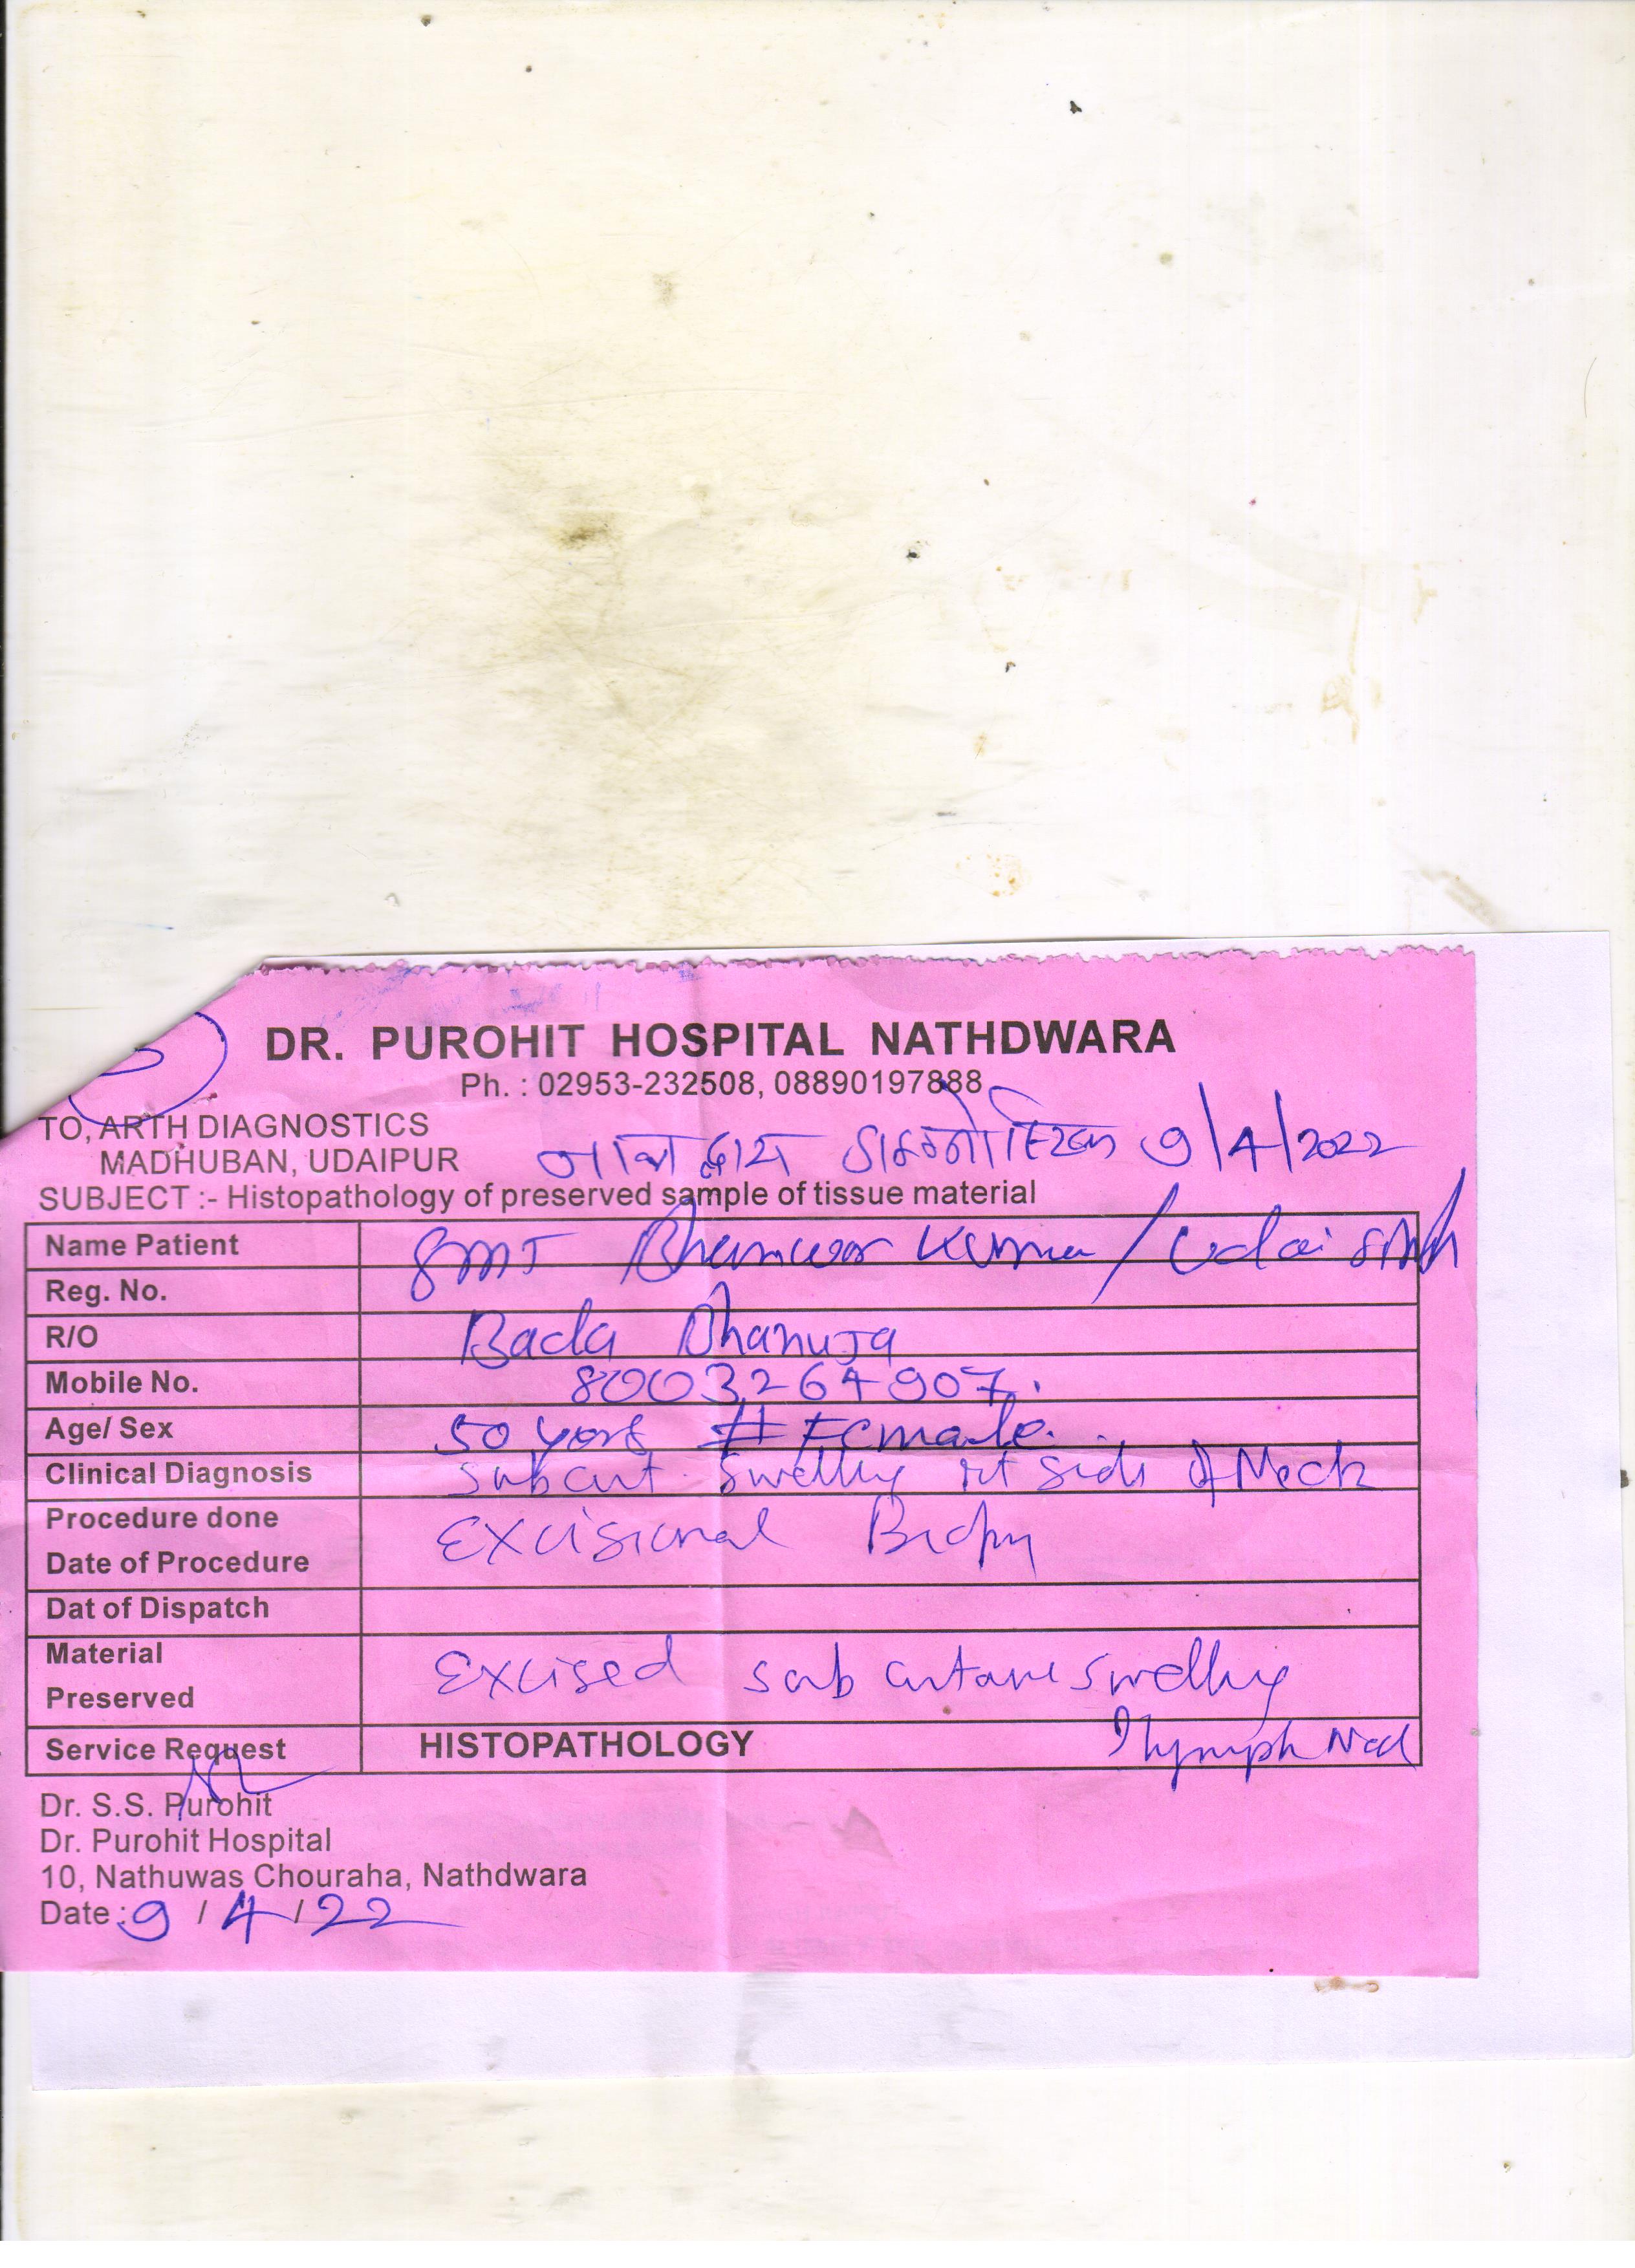 DR. PUROHIT HOSPITAL NATHDWARA
Ph. : 02953-232508, 08890197888
TO, ARTH DIAGNOSTICS
MADHUBAN, UDAIPUR
9/4/2022
SUBJECT :- Histopathology of preserved sample of tissue material
Name Patient SMT Bhanwar Kunwar / Udai Singh
Reg. No.
R/O Bada Bhanuja
Mobile No. 8003264907.
Age/ Sex 50 years Female.
Clinical Diagnosis Subcut. Swelling rt side of Neck
Procedure done Excisional Biopsy
Date of Procedure
Dat of Dispatch
Material Excised sub cutane swelling
Preserved
Service Request HISTOPATHOLOGY ? lymph Nod
Dr. S.S. Purohit
Dr. Purohit Hospital
10, Nathuwas Chouraha, Nathdwara
Date : 9 / 4 / 22